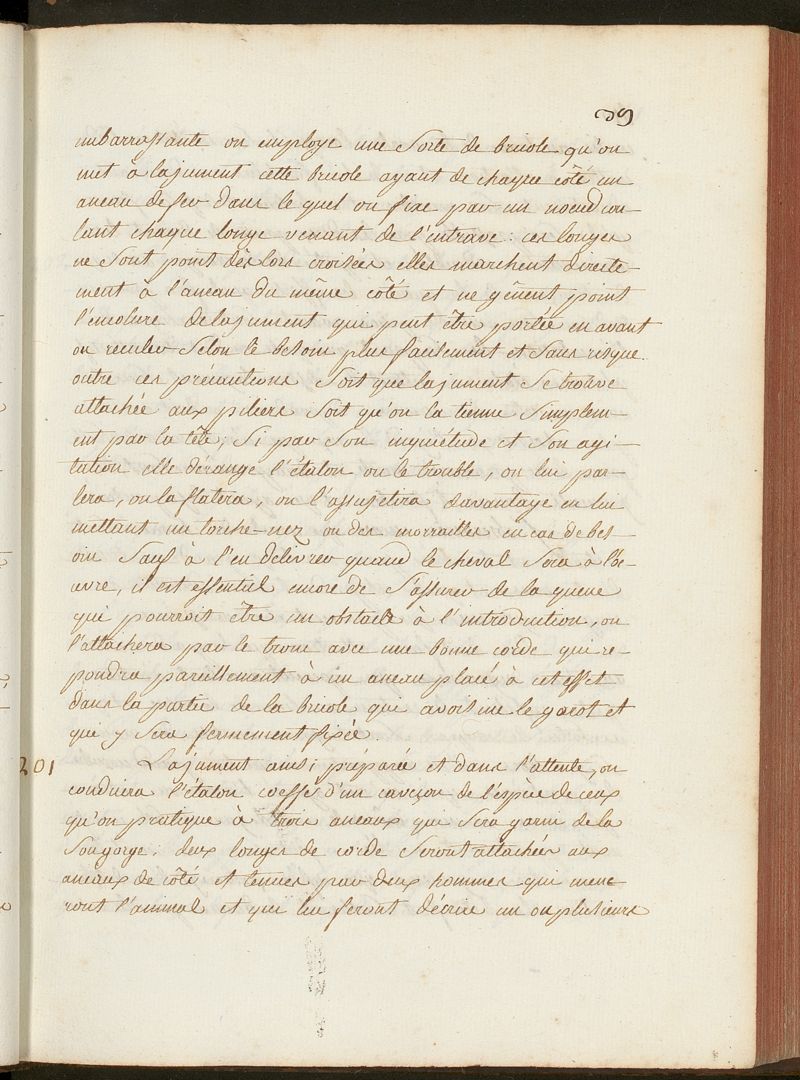 39
embarrassante on employe une Sorte de bricole qu'on
met à lajument cette bricole ayant de chaque côté un
aneau defer dans le quel on fixe par un noeud cou-
lant chaque longe venant de l'entrave: ces longes
ne Sont point dès lors croisées elles marchent directe-
ment à l'aneau du même côté et ne gênent point
l'encolure delajument qui peut être portée en avant
ou reculer Selon le besoin plus facilement et Sans risque.
outre ces précautions Soit que lajument Se trouve
attachée aux piliers Soit qu'on la tienne Simplem-
ent par la tête; Si par Son inquiétude et Son agi-
tation elle dérange l'étalon ou le trouble, on lui par-
lera, on la flatera, on l'assujetira davantage en lui
mettant un torche-nez ou des morrailles en cas de bes-
oin Sauf à l'en delivrer quand le cheval Sera à l'oe-
uvre, il est essentiel encore de S'assurer de la queue
qui pourroit être un obstacle à l'introduction, on
l'attachera par le tronc avec une bonne corde qui re-
pondra pareillement à un aneau placé à cet effet
dans la partie de la bricole qui avoisine le garot et
qui y Sera fermement fixée.
201 Lajument ainsi préparée et dans l'attente, on
conduira l'étalon coeffé d'un caveçon de l'espèce de ceux
qu'on pratique à trois aneaux qui Sera garni de la
Sougorge; deux longes de corde Seront attachées aux
aneaux de côté et tenues par deux hommes qui mene-
ront l'animal et qui lui feront décrire un ou plusieurs